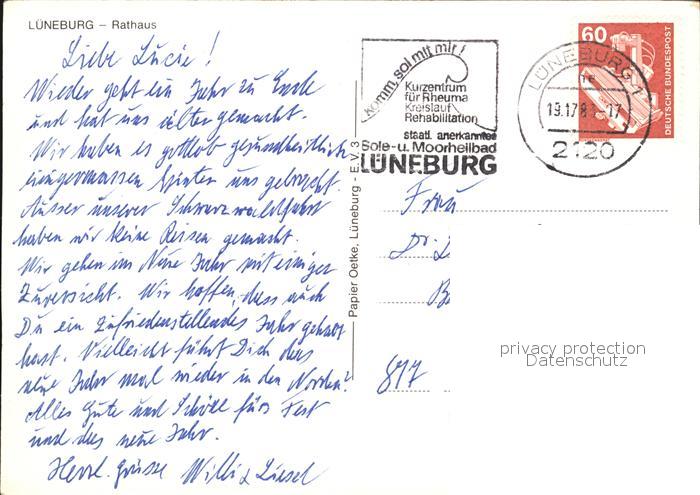 LÜNEBURG – Rathaus
Liebe Lucie!
Wieder geht ein Jahr zu Ende
und hat uns älter gemacht.
Wir haben es gottlob gesundheitlich
einigermassen hinter uns gebracht.
Ausser unserer Schwarzwaldfahrt
haben wir keine Reisen gemacht.
Wir gehen ins Neue Jahr mit einiger
Zuversicht. Wir hoffen, dass auch
Du ein zufriedenstellendes Jahr gehabt
hast. Vielleicht führt Dich das
neue Jahr mal wieder in den Norden?
Alles Gute und Schöne fürs Fest
und das neue Jahr.
Herzl. Grüsse Willi & Liesel
Papier Oetke, Lüneburg - E.V. 3
komm, sol mit mir!
Kurzentrum
für Rheuma
Kreislauf
Rehabilitation
staatl. anerkanntes
Sole- u. Moorheilbad
LÜNEBURG
LÜNEBURG 1
2120
60
DEUTSCHE BUNDESPOST
Frau
Dr.
privacy protection
Datenschutz